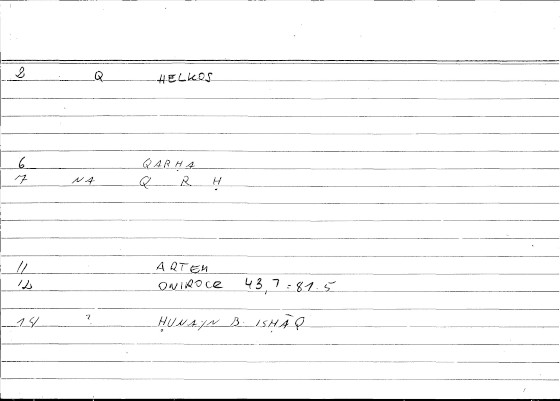 2 Q HELKOS
6 QARḤA
7 NA Q R Ḥ
11 ARTEM
12 ONIROCR 43,7=81.5
14 ? ḤUNAYN B. ISḤĀQ